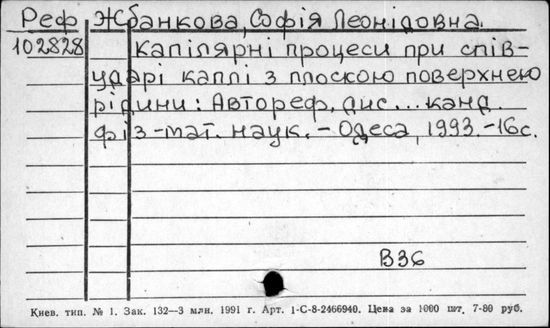 Реф Жбанкова, Софія Леонідовна.
102828 Капілярні процеси при спів-
ударі каплі з плоскою поверхнею
рідини: Автореф. дис... канд.
фіз-мат. наук. - Одеса, 1993. - 16с.
В36
Киев. тип. № 1. Зак. 132—3 млн. 1991 г. Арт. 1-С-8-2466940. Цена за 1000 шт. 7-80 руб.